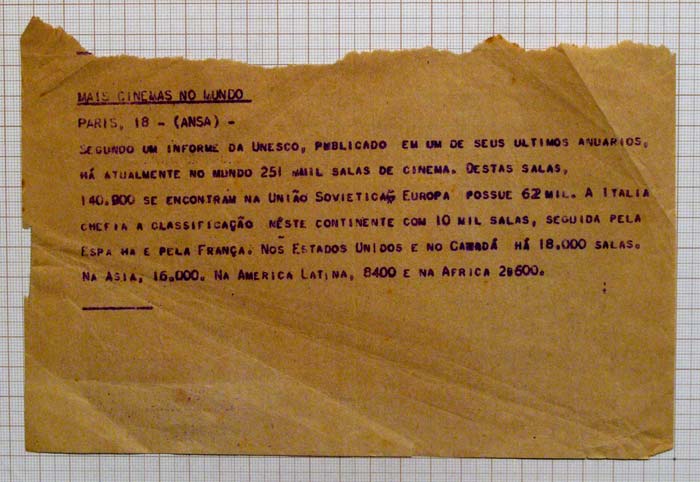 MAIS CINEMAS NO MUNDO
PARIS, 18 - (ANSA) -
SEGUNDO UM INFORME DA UNESCO, PUBLICADO EM UM DE SEUS ULTIMOS ANUARIOS,
HÁ ATUALMENTE NO MUNDO 251 MIL SALAS DE CINEMA. DESTAS SALAS,
140.900 SE ENCONTRAM NA UNIÃO SOVIETICA, EUROPA POSSUE 62 MIL. A ITALIA
CHEFIA A CLASSIFICAÇÃO NÊSTE CONTINENTE COM 10 MIL SALAS, SEGUIDA PELA
ESPA HA E PELA FRANÇA. NOS ESTADOS UNIDOS E NO CANADÁ HÁ 18.000 SALAS.
NA ASIA, 16.000. NA AMERICA LATINA, 8400 E NA AFRICA